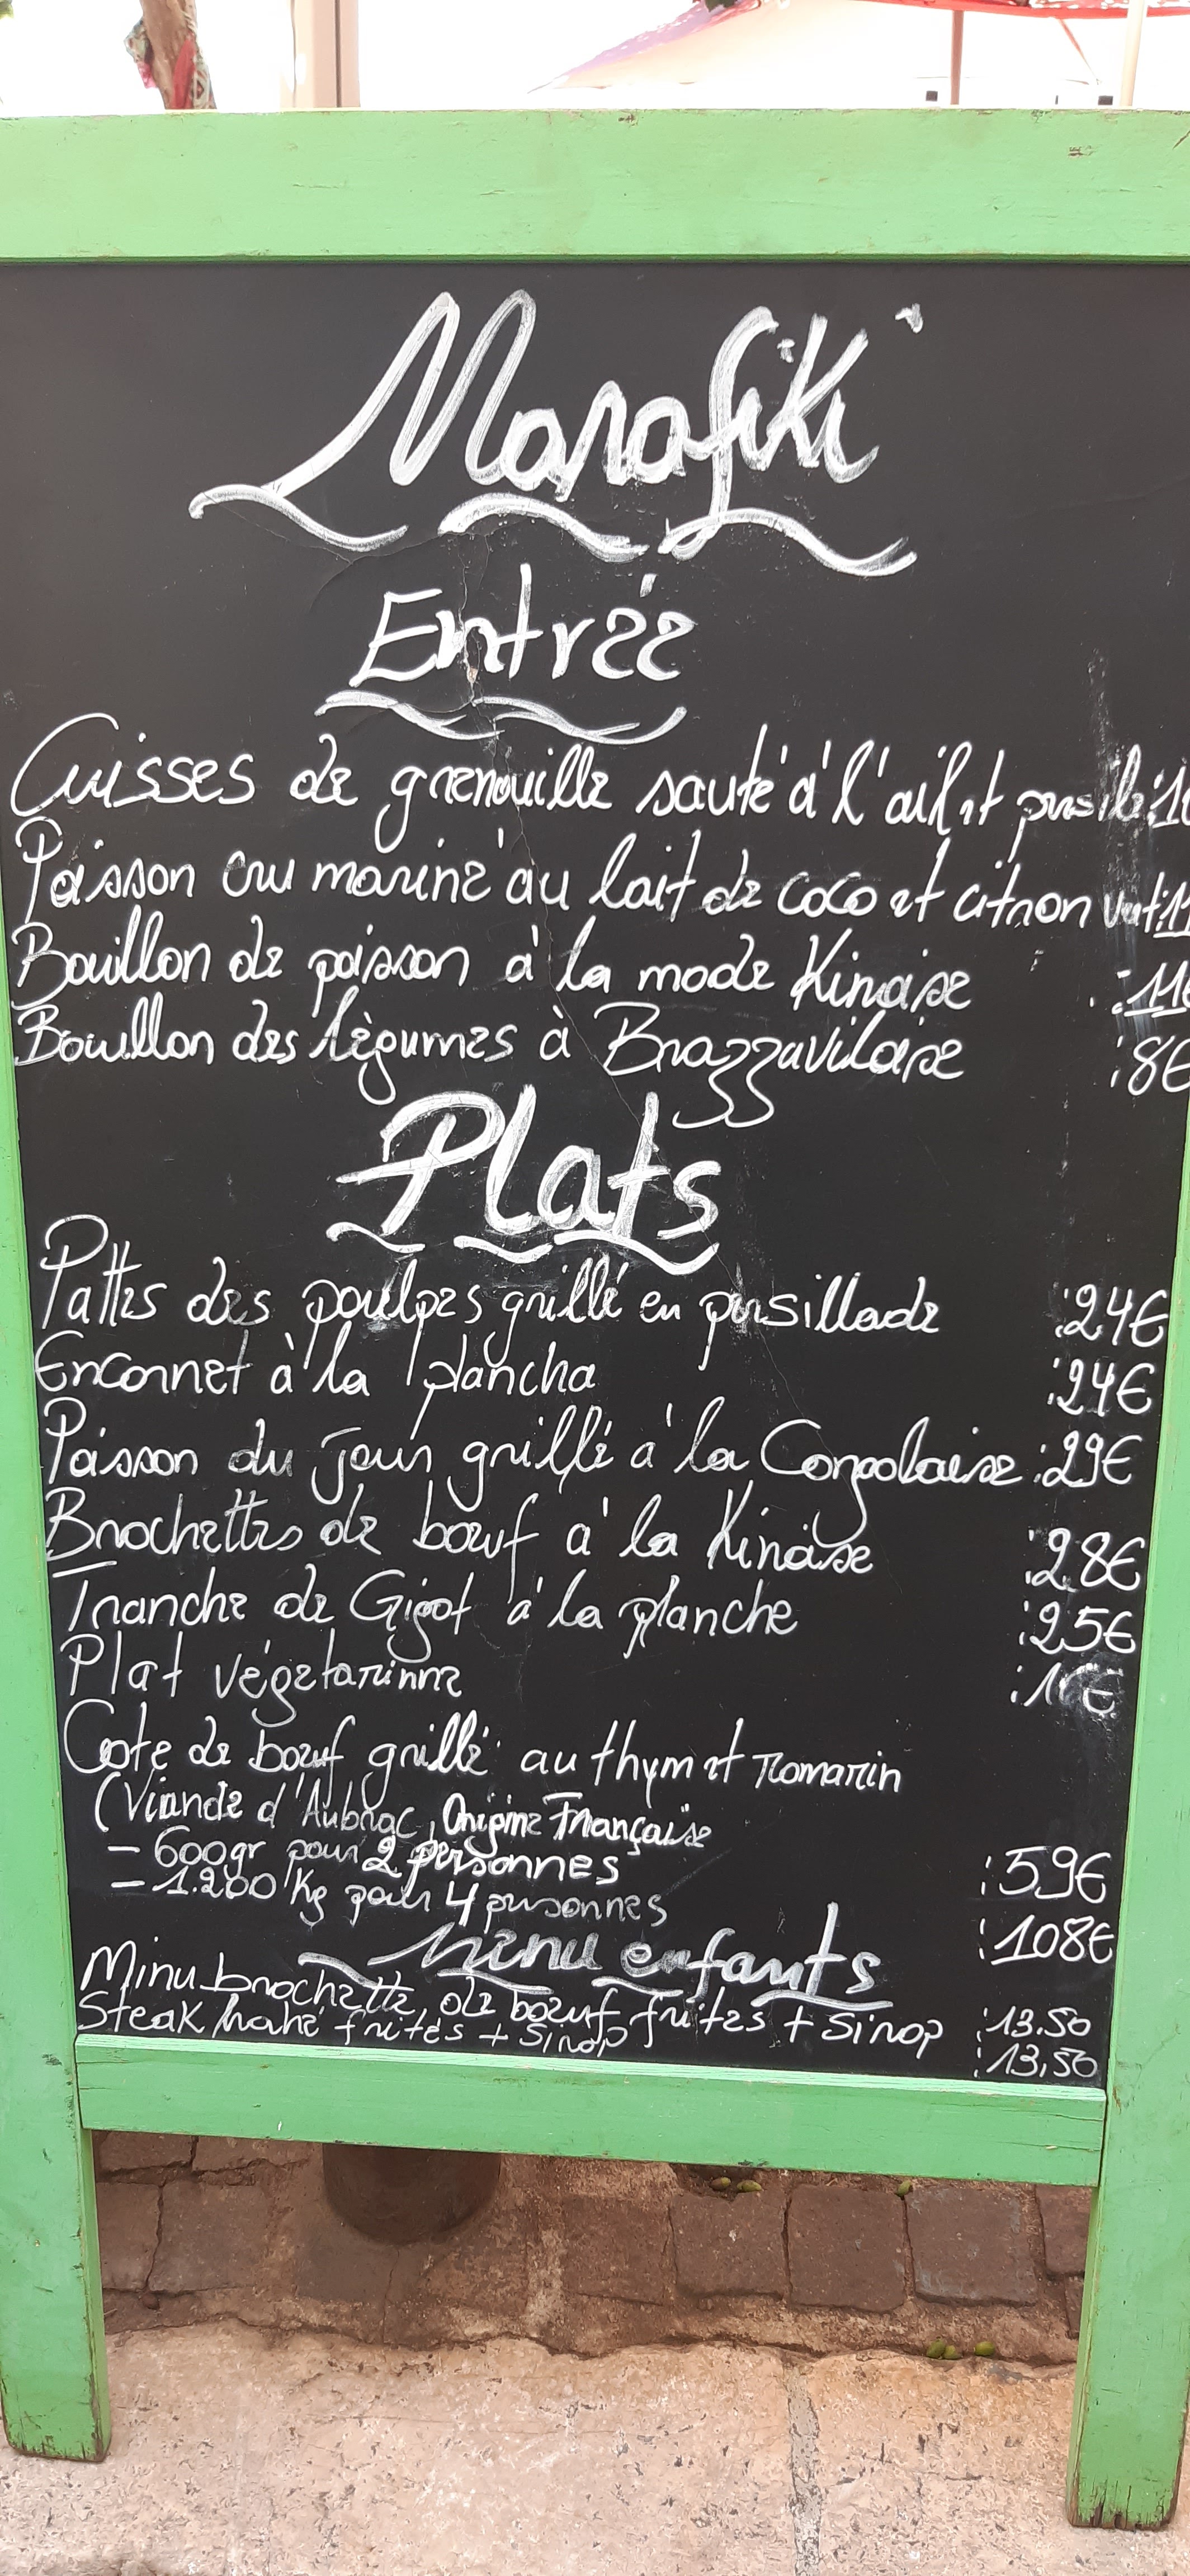 Marafiki
Entrée
Cuisses de grenouille sauté à l'ail et persil :1
Poisson cru mariné au lait de coco et citron vert :11
Bouillon de poisson à la mode Kinoise :11€
Bouillon des légumes à Brazzaviloise :8€
Plats
Pattes des poulpes grillé en persillade :24€
Encornet à la plancha :24€
Poisson du jour grillé à la Congolaise :29€
Brochettes de boeuf à la Kinoise :28€
Tranche de Gigot à la planche :25€
Plat végetarienne
Cote de boeuf grillé au thym et Romarin
(Viande d'Aubrac, Origine Française
- 600gr pour 2 personnes :59€
- 1.200 Kg pour 4 personnes :108€
Menu enfants
Minu brochette de boeuf frites + Sirop :13.50
Steak haché frites + Sirop :13,50